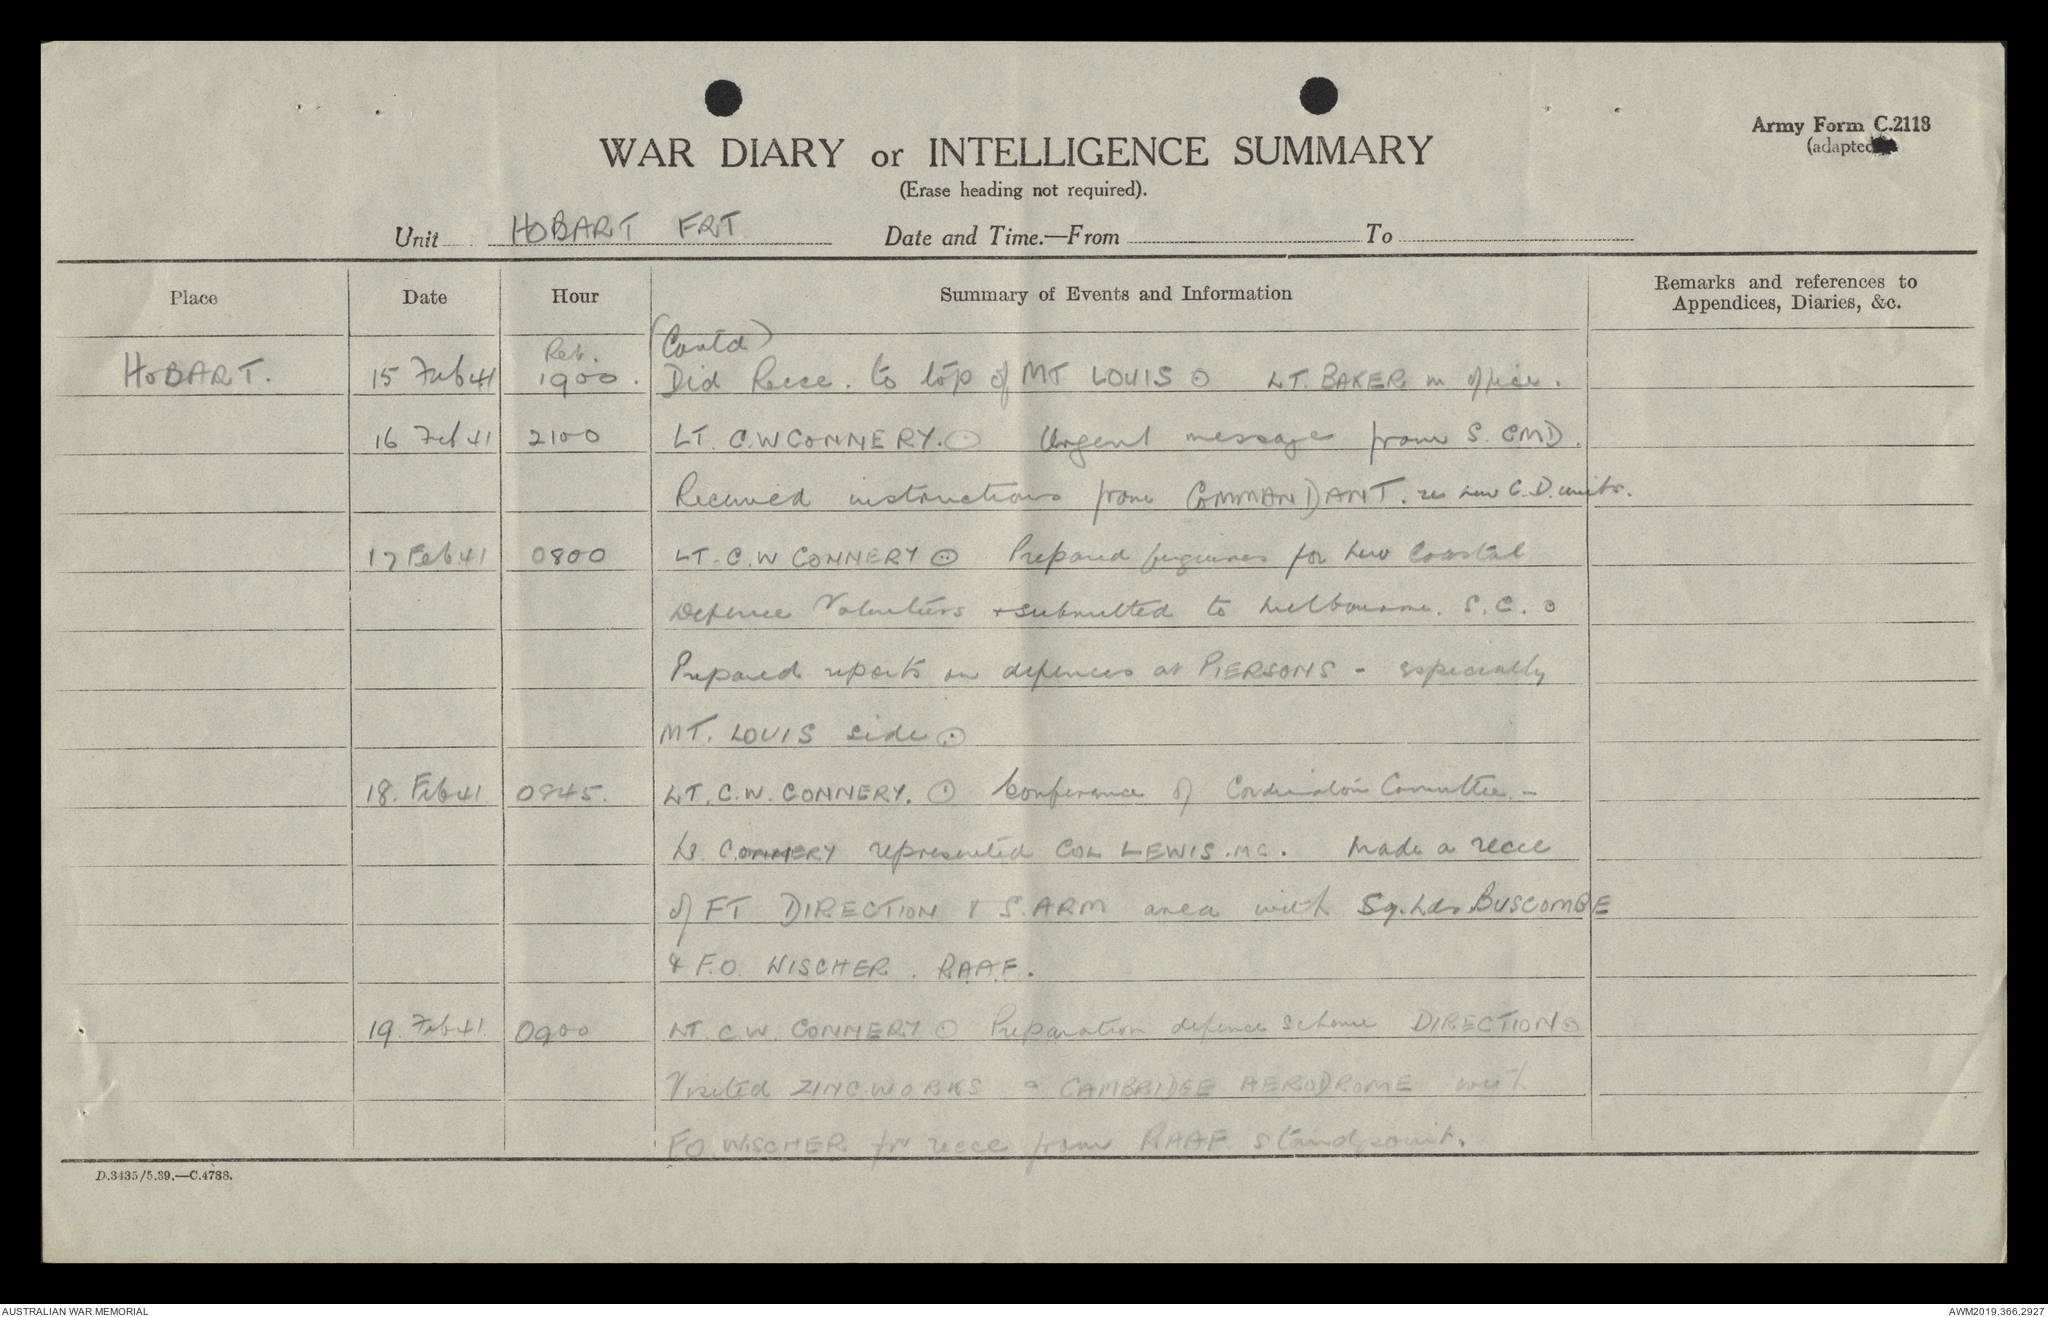 Army Form C.2118
(adapted)
WAR DIARY or INTELLIGENCE SUMMARY
(Erase heading not required).
Unit HOBART FRT Date and Time.—From To
Place Date Hour Summary of Events and Information Remarks and references to Appendices, Diaries, &c.
(Contd)
HOBART. 15 Feb 41 Ret. 1900. Did Recce. to top of MT LOUIS LT. BAKER in office.
16 Feb 41 2100 LT. C.W CONNERY. Urgent message from S. CMD.
Received instructions from COMMANDANT. re new C.D. units.
17 Feb 41 0800 LT. C.W CONNERY Prepared figures for new Coastal
Defence Volunteers + submitted to Melbourne. S.C.
Prepared reports on defences at PIERSONS - especially
MT. LOUIS side
18. Feb 41 0845. LT. C.W. CONNERY. Conference of Coordination Committee -
Lt. CONNERY represented COL LEWIS. MC. Made a recce
of FT DIRECTION & S. ARM area with Sq. Ldr BUSCOMBE
& F.O. WISCHER. RAAF.
19. Feb 41. 0900 LT. C.W. CONNERY Preparation defence scheme DIRECTION
Visited ZINC WORKS & CAMBRIDGE AERODROME with
F.O. WISCHER for recce from RAAF standpoint.
D.3435/5.39.—C.4788.
AUSTRALIAN WAR MEMORIAL AWM2019.366.2927